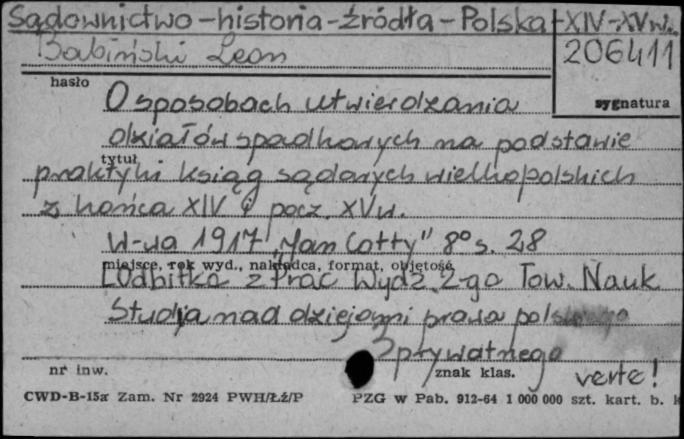 Sądownictwo-historia-źródła-Polska-XIV-XVw.
Babiński Leon
206411
hasło
sygnatura
O sposobach utwierdzania
działów spadkowych na podstawie
tytuł
praktyki ksiąg sądowych wielkopolskich
z końca XIV i pocz. XVw.
W-wa 1917 "Jan Cotty" 8° s. 28
miejsce, rok wyd., nakładca, format, objętość
[Odbitka z Prac Wydz. 2-go Tow. Nauk.
Studja nad dziejami prawa polskiego
prywatnego
nr inw.
znak klas.
verte!
CWD-B-15a Zam. Nr 2924 PWH/Łź/P
PZG w Pab. 912-64 1 000 000 szt. kart. b. k